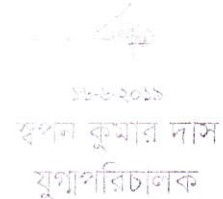 ১৬-৬-২০১৯
স্বপন কুমার দাস
যুগ্মপরিচালক